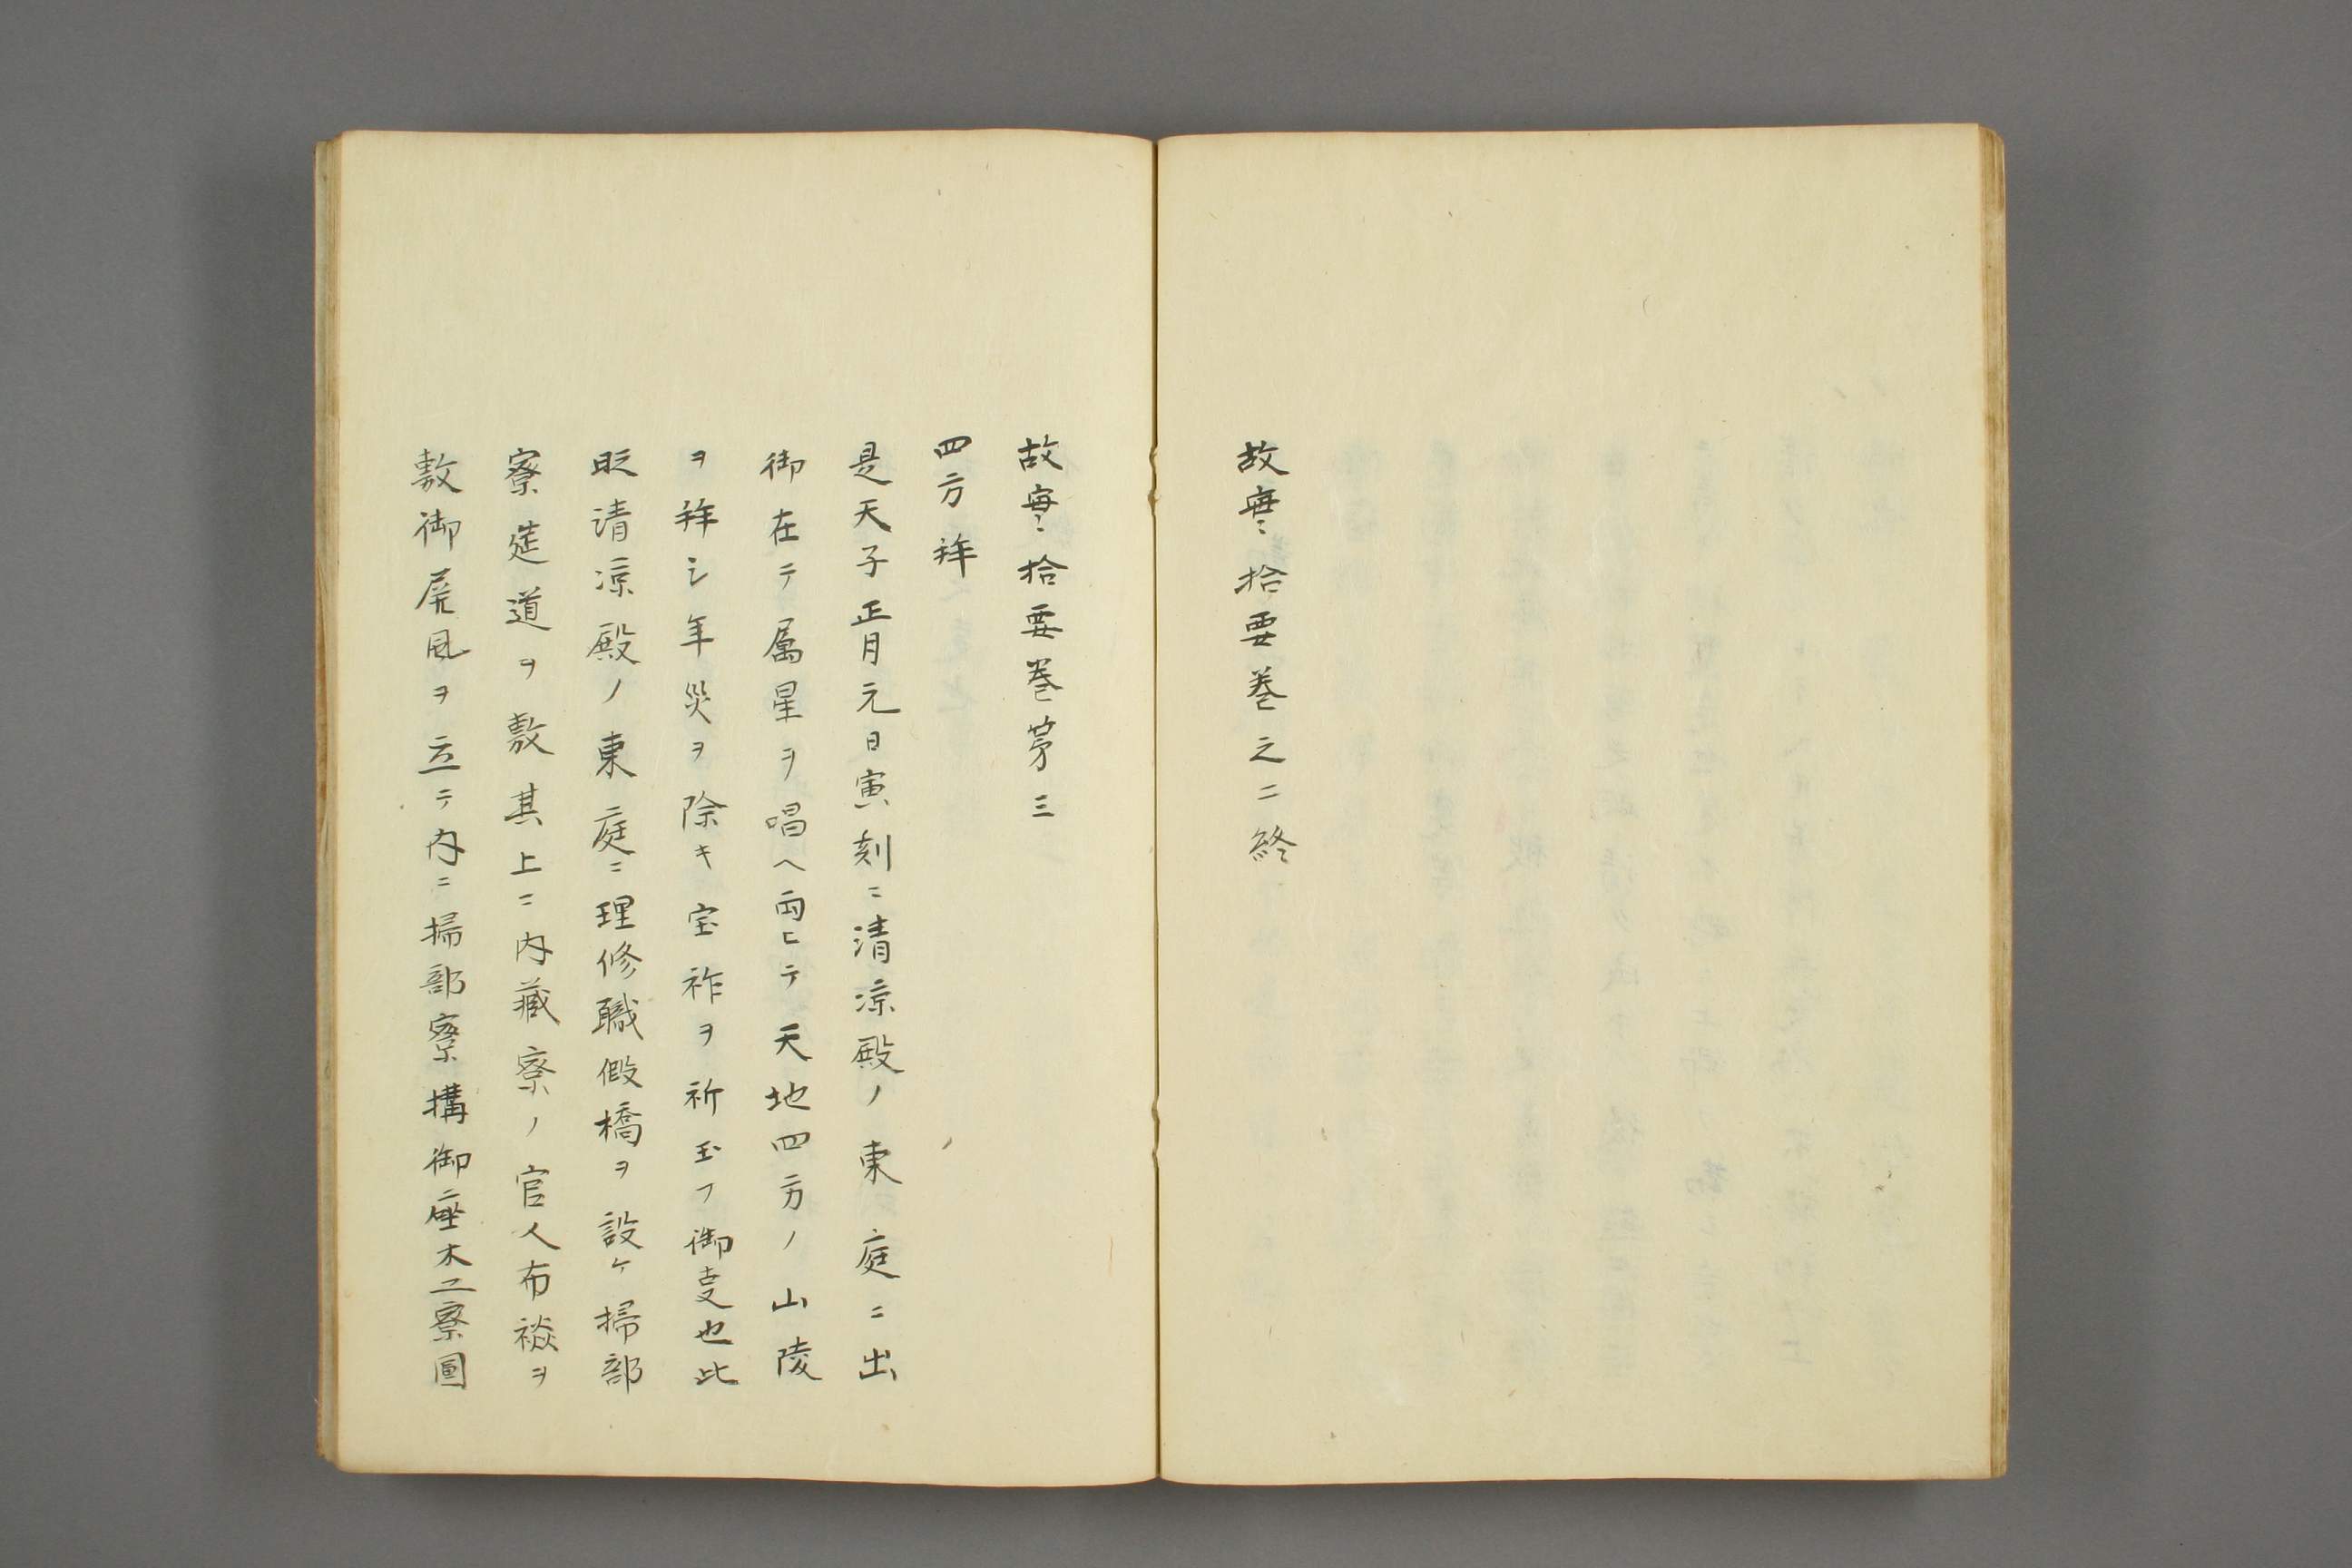 故寔拾要巻之二終
故寔拾要巻第三
四方拜
是天子正月元日寅刻ニ清凉殿ノ東庭ニ出
御在テ属星ヲ唱ヘ而ヒテ天地四方ノ山陵
ヲ拜シ年災ヲ除キ宝祚ヲ祈玉フ御支也此
時清凉殿ノ東庭ニ理修職假橋ヲ設ケ掃部
寮筵道ヲ敷其上ニ内藏寮ノ官人布毯ヲ
敷御屏風ヲ立テ内ニ掃部寮構御座木工寮圖